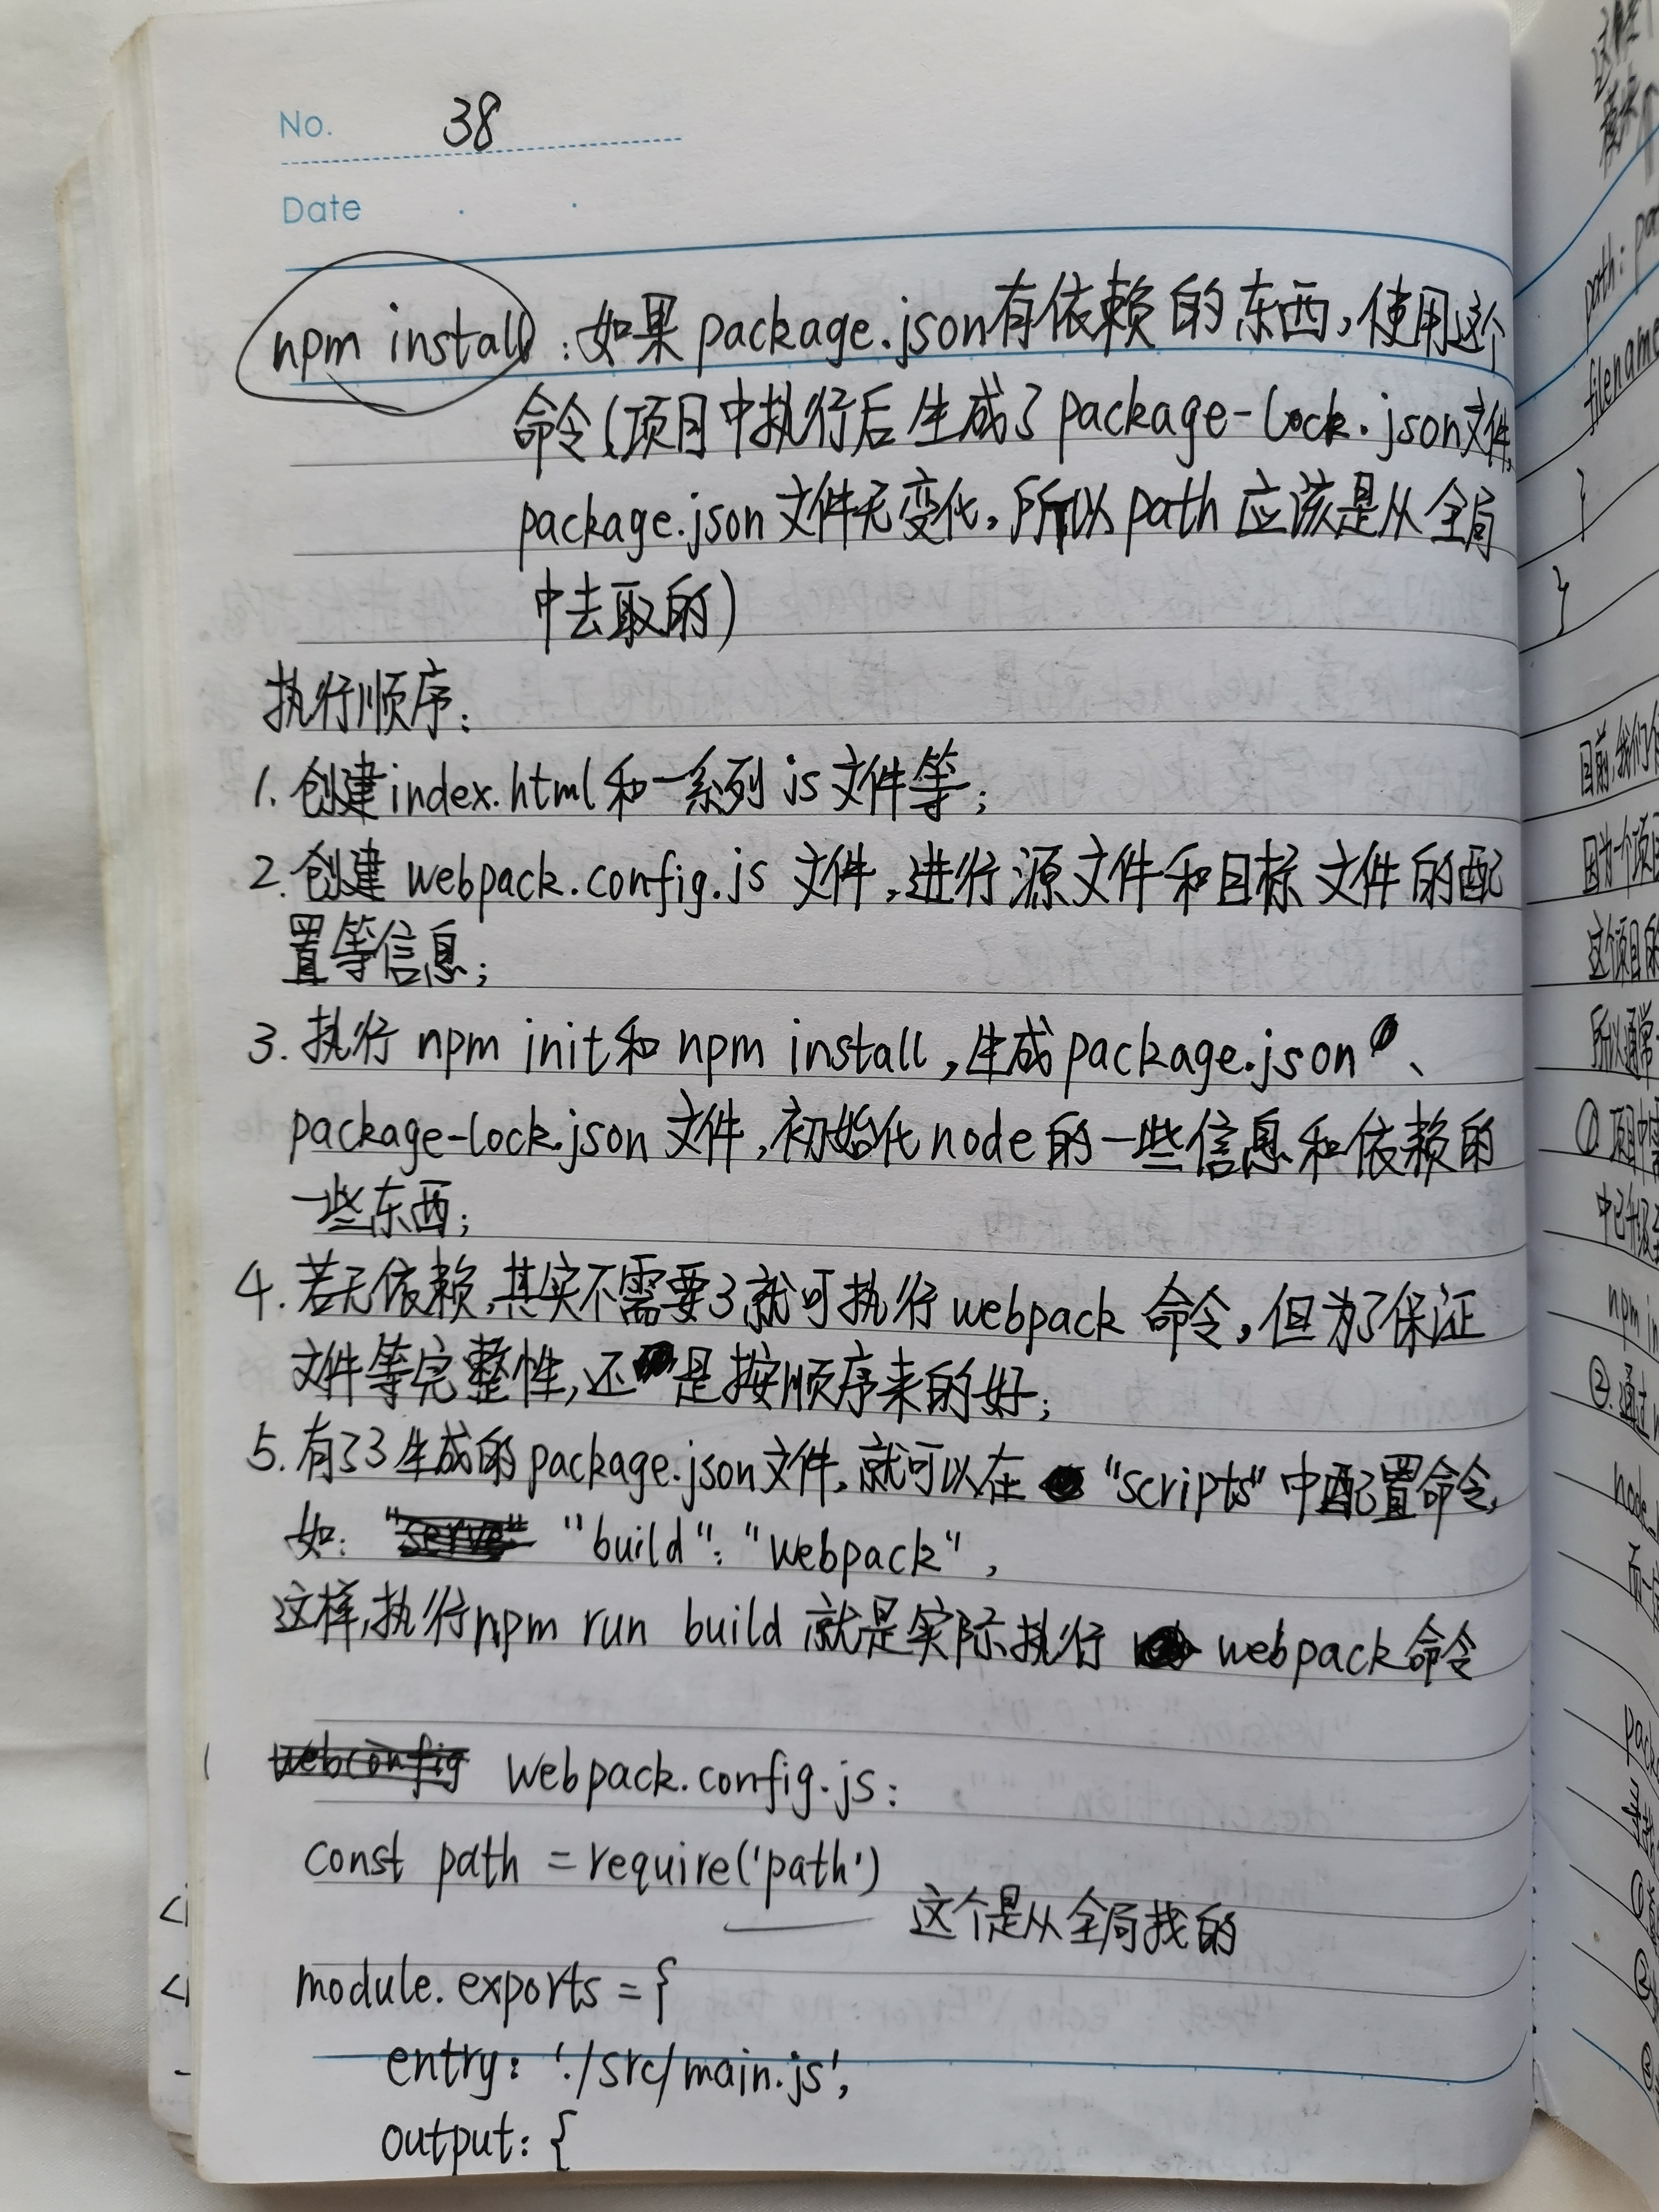 No. 38
Date
npm install：如果package.json有依赖的东西，使用这个
命令（项目中执行后生成了package-lock.json文件，
package.json文件无变化，所以path应该是从全局
中去取的）
执行顺序：
1. 创建index.html和一系列js文件等；
2. 创建 webpack.config.js 文件，进行源文件和目标文件的配
置等信息；
3. 执行 npm init和 npm install，生成package.json、
package-lock.json文件，初始化node的一些信息和依赖的
一些东西；
4. 若无依赖，其实不需要3就可执行webpack 命令，但为了保证
文件等完整性，还是按顺序来的好；
5. 有了3生成的package.json文件，就可以在 "scripts"中配置命令，
如： "serve" "build"："webpack"，
这样，执行npm run build 就是实际执行 webpack命令
webconfig webpack.config.js：
const path = require('path')
这个是从全局找的
module.exports = {
entry: './src/main.js',
output: {
path:
filename
}
}
目前，我们
因为一个项目
这个项目的
所以通常
① 项目中
npm in
② 通过
node_